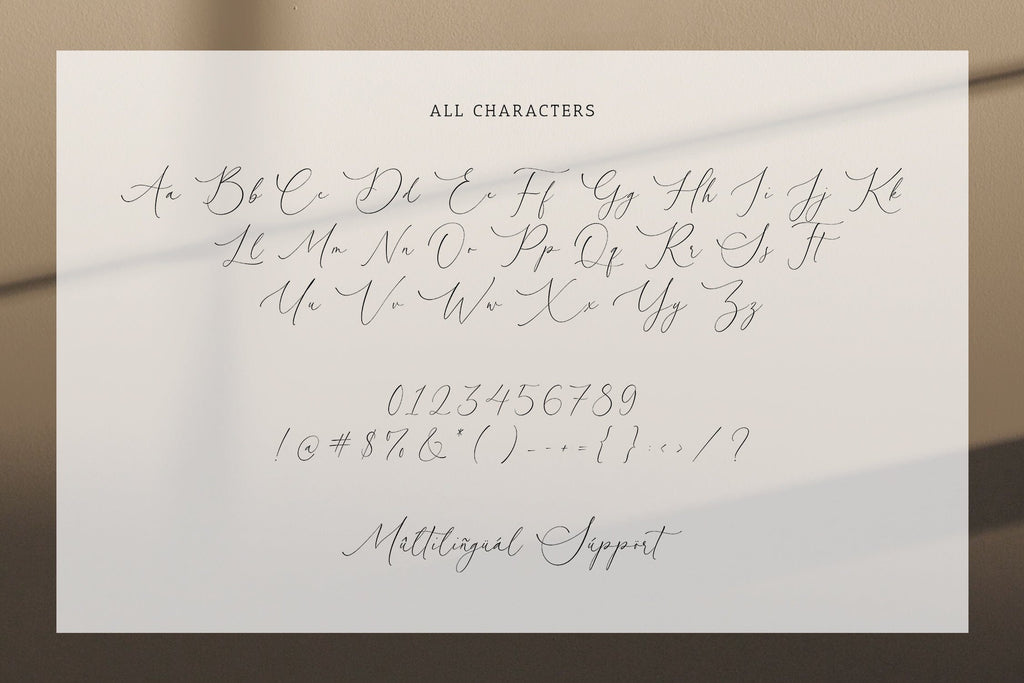 ALL CHARACTERS
Aa Bb Cc Dd Ee Ff Gg Hh Ii Jj Kk
Ll Mm Nn Oo Pp Qq Rr Ss Tt
Uu Vv Ww Xx Yy Zz
0123456789
! @ # $ % & * ( ) _ - + = { } : < > / ?
Mûltiliñgüál Súppört